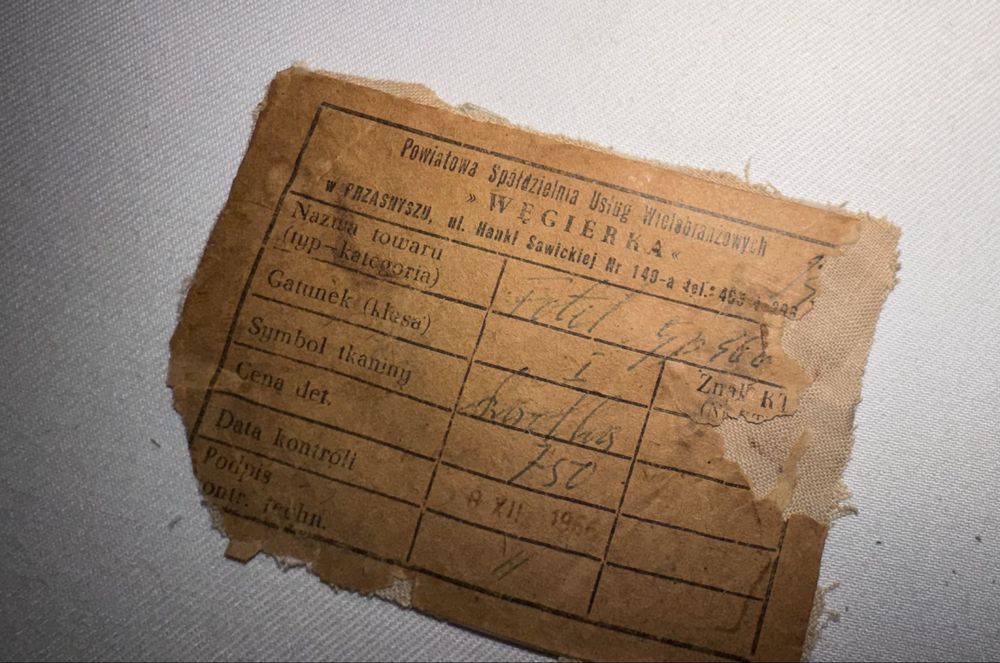 Powiatowa Spółdzielnia Usług Wielobranżowych
» WĘGIERKA «
w PRZASNYSZU, ul. Hanki Sawickiej Nr 149-a tel.:
Nazwa towaru
(typ—kategoria)
Gatunek (klasa)
I
Symbol tkaniny
Cena det.
750
Data kontroli
8 XII 1966
Podpis
ontr. techn.
Znak K